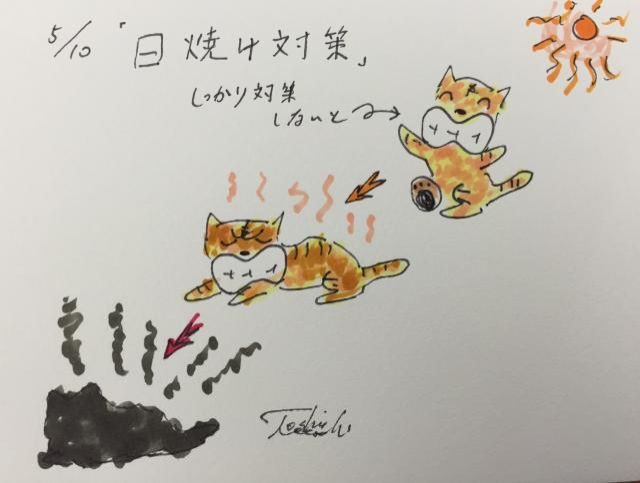 5/10「日焼け対策」
しっかり対策
しないと